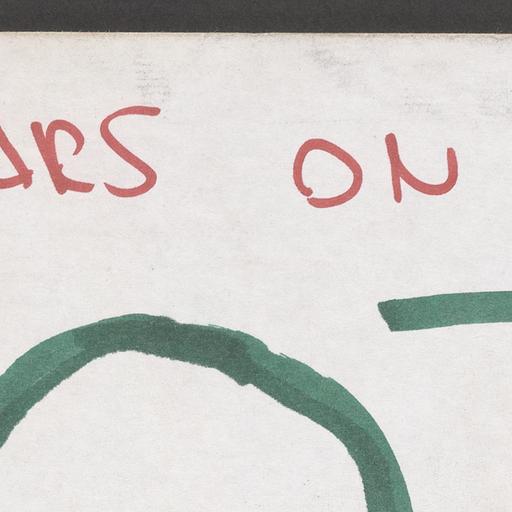 ARS ON